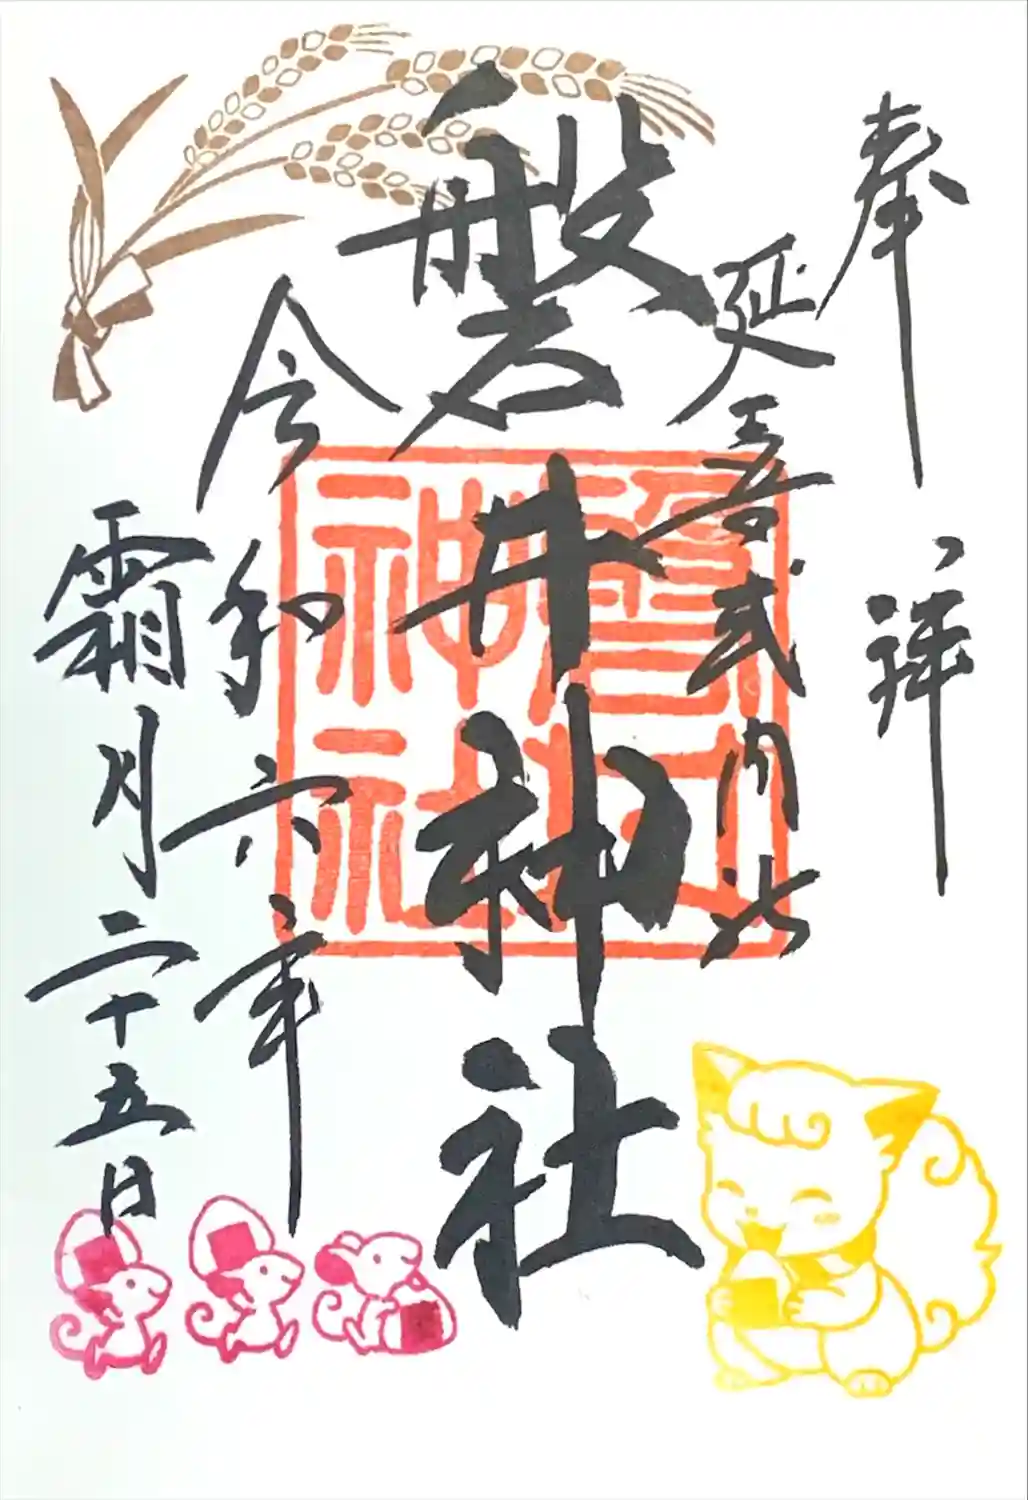 奉拝
延喜式内社
磐井神社
磐井神社
令和六年
霜月二十五日